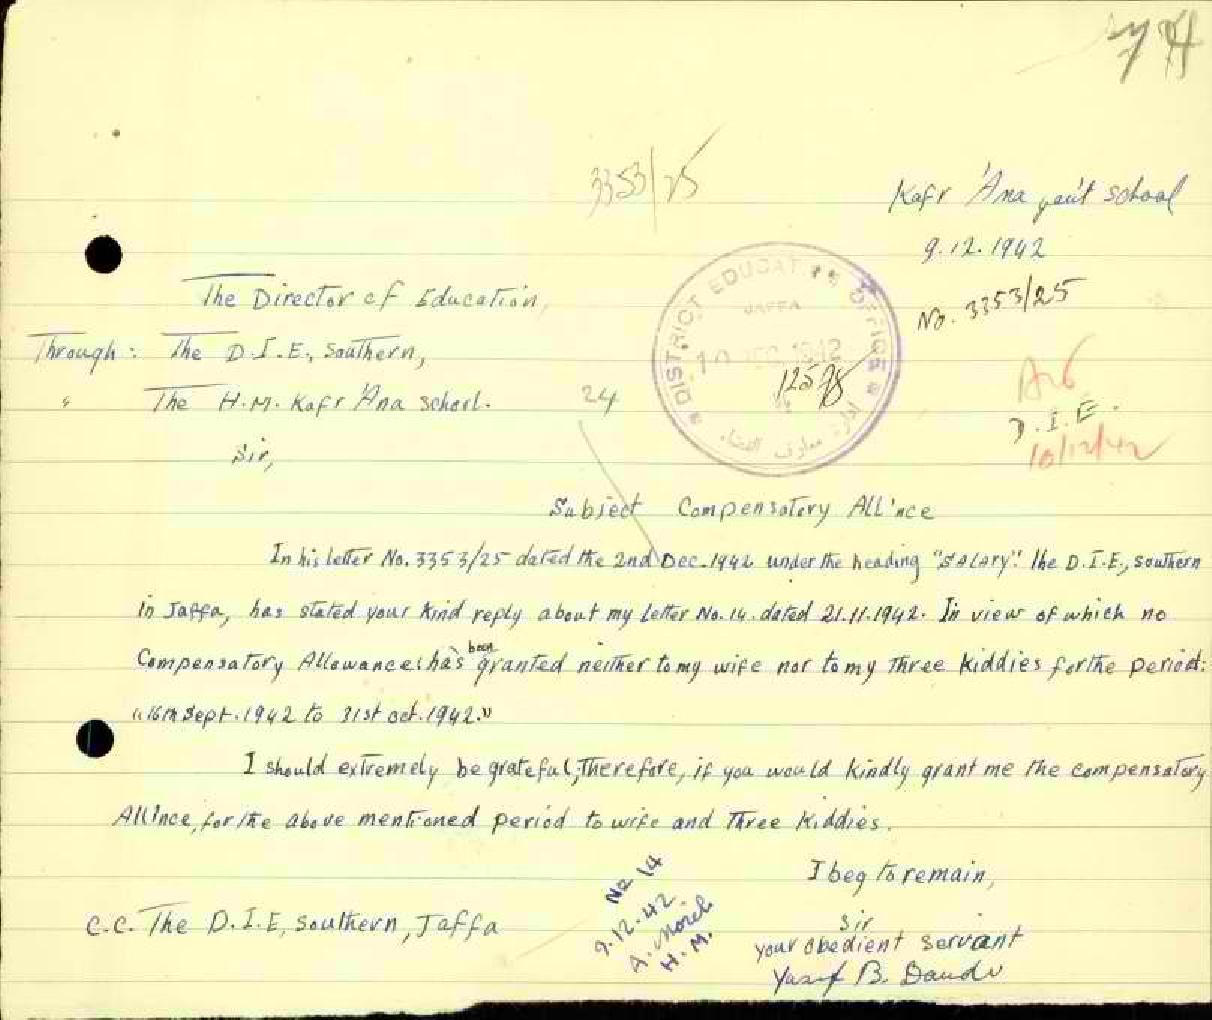 74
3353/25
Kafr 'Ana gov't school
9.12.1942
No. 3353/25
The Director of Education,
Through: The D.I.E., Southern,
" The H.M. Kafr 'Ana school.
24
DISTRICT EDUCATION OFFICE
JAFFA
10 DEC 1942
12598
D.I.E.
10/12/42
Sir,
Subject Compensatory All'nce
In his letter No. 3353/25 dated the 2nd Dec. 1942 under the heading "SALARY". The D.I.E., southern
in Jaffa, has stated your kind reply about my letter No. 14. dated 21.11.1942. In view of which no
Compensatory Allowance has been granted neither to my wife nor to my three kiddies for the period:
"16th Sept. 1942 to 31st oct. 1942."
I should extremely be grateful, therefore, if you would kindly grant me the compensatory
All'nce, for the above mentioned period to wife and three kiddies.
I beg to remain,
Sir
your obedient servant
Yusif B. Daudu
C.C. The D.I.E, Southern, Jaffa
No 14
9.12.42.
H.M.